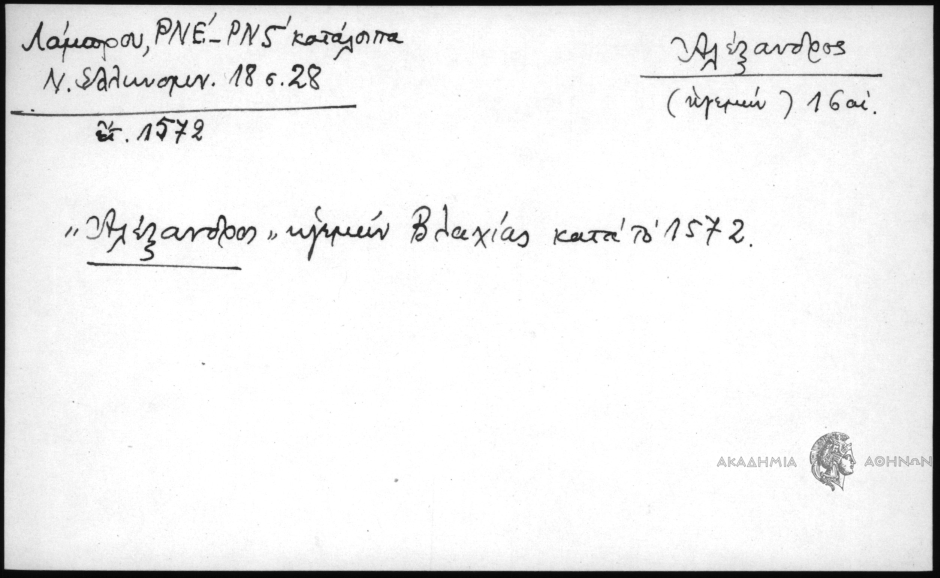 Λάμπρου, ΡΝΕ´-ΡΝϚ´ κατάλοιπα
Ν. Ελληνομν. 18 σ. 28
ἔτ. 1572
Ἀλέξανδρος
(ἡγεμών) 16 αἰ.
„Ἀλέξανδρος„ ἡγεμών Βλαχίας κατά τό 1572.
ΑΚΑΔΗΜΙΑ ΑΘΗΝΩΝ